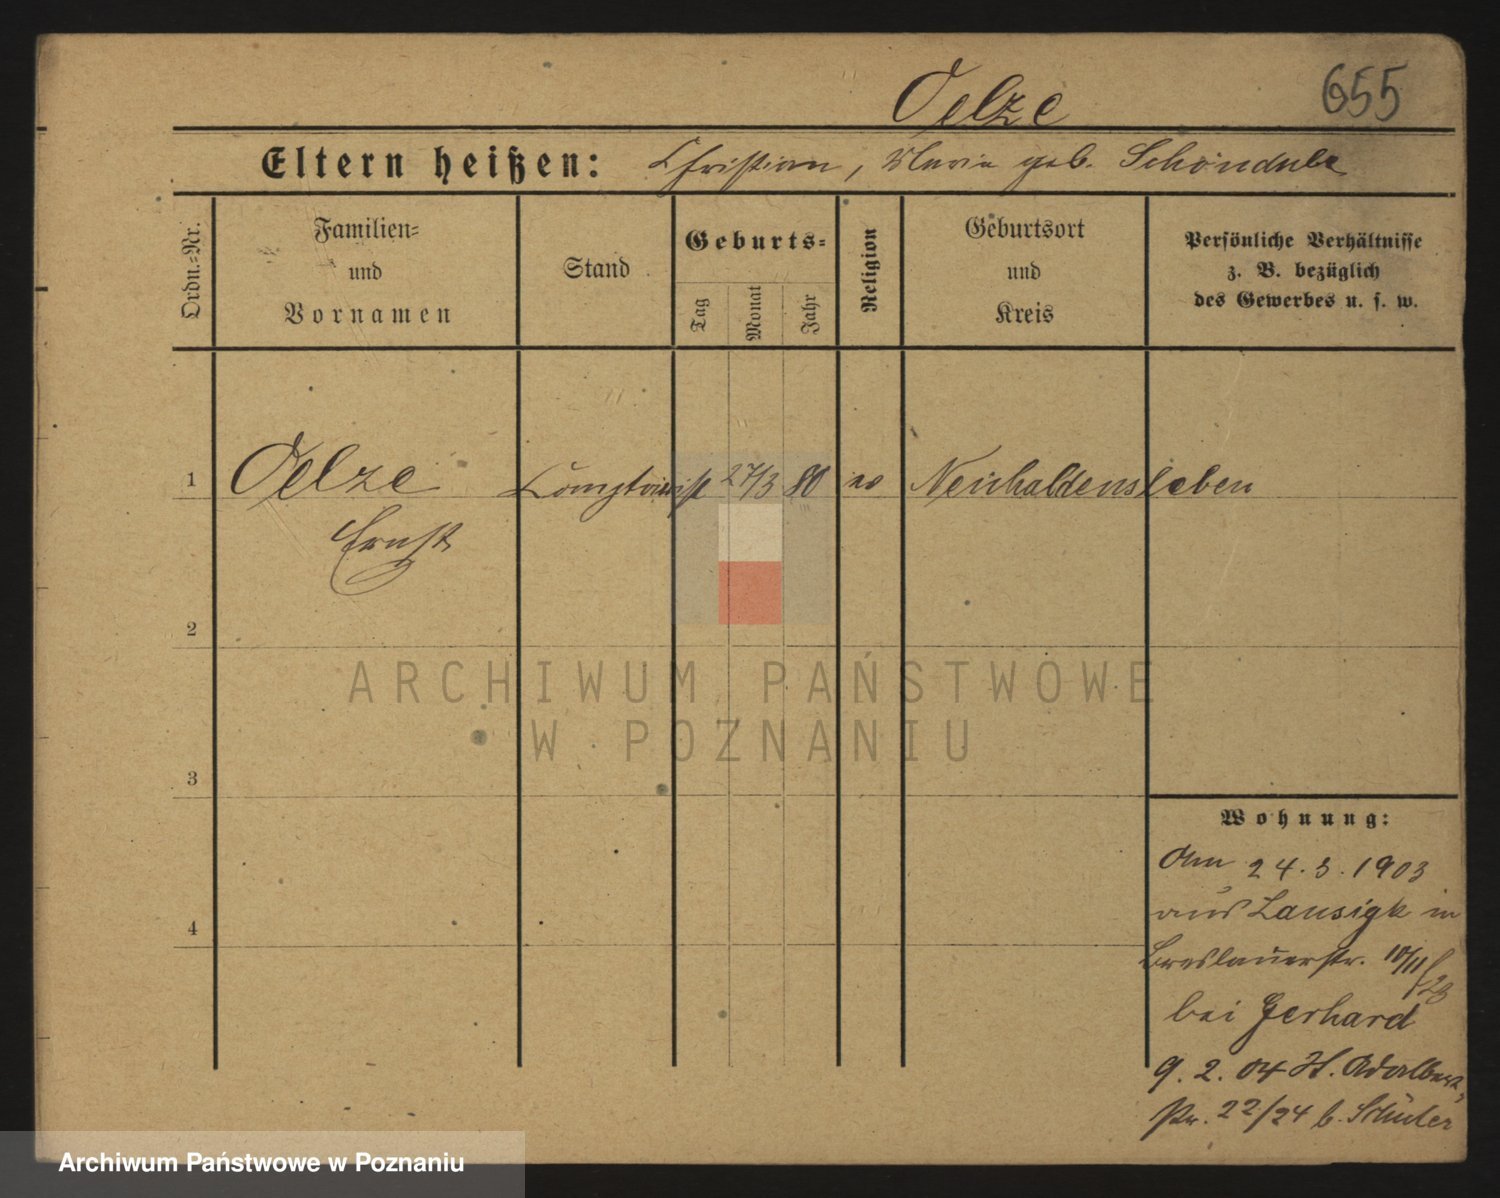 Oelze
655
Eltern heißen: Christian, Maria geb. Schöndube
Ordn.=Nr.
Familien=
und
Vornamen
Stand
Geburts=
Tag
Monat
Jahr
Religion
Geburtsort
und
Kreis
Persönliche Verhältnisse
z. B. bezüglich
des Gewerbes u. s. w.
1 Oelze Comptoirist 27/3 80 ev Neuhaldensleben
Ernst
2
3
4
Wohnung:
Am 24.3.1903
aus Lausigk in
Breslauerstr. 10/11
bei Gerhard
9. 2. 04 St. Adalbert
22/24 b. Schüler
ARCHIWUM PAŃSTWOWE
W POZNANIU
Archiwum Państwowe w Poznaniu